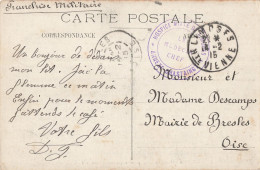 Franchise Militaire
CARTE POSTALE
CORRESPONDANCE
Un bonjour de
mon lit. J'ai la
flemme ce matin
Enfin pour le moment
j'attends le café
Votre fils
D. J.
LIMOGES
14-2
15
Hte VIENNE
Monsieur et
Madame Descamps
Mairie de Bresles
Oise